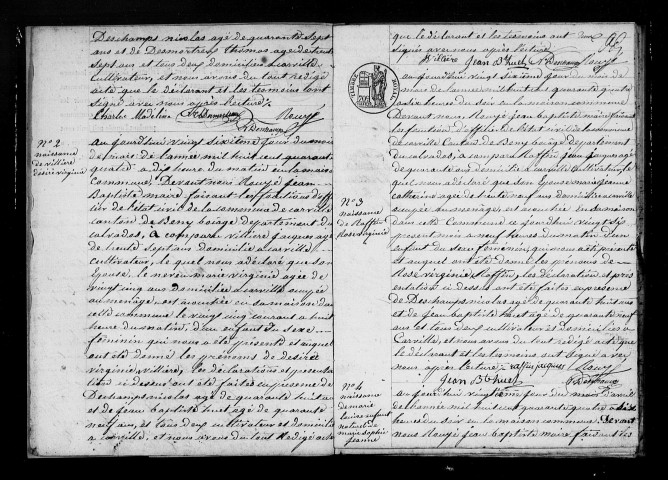 Deschamps nicolas agé de quarante sept
ans et de Desmortreux thomas age de trente
sept ans et tous deux domiciliés a carville
cultivateur, et nous avons du tout redigé
acte que le déclarant et les temoins ont
signé avec nous apres lecture
Charles Madeline
Rouzé
N Deschamps
N° 2
naissance
de villiere
desirée virginie
au jourd'huy vingt sixieme jour du mois
de mars de l'année mil huit cent quarante
quatre a dix heure du matin en la maison
commune, Devant nous Rouzé Jean
Baptiste maire faisant les fonctions d'offi
cier de l'etat civil de la commune de carville
canton de Beny bocage departement du
calvados, a comparu villiere jacques agé
de trente sept ans domicilié a carville
cultivateur, le quel nous a déclaré que son
épouse, le neveu marie virginie agée de
vingt cinq ans domiciliée a carville occupée
au menage, est accouchée en sa maison dans
cette commune le vingt cinq courant a huit
heure du matin, d'un enfant du sexe
feminin qui nous a été presenté et auquel
ont été donné les prenoms de desirée
virginie villiere, les déclarations et presenta
tion ci dessus ont été faites en presence de
Deschamps nicolas agé de quarante huit ans
et de jean baptiste huet agé de quarante
neuf ans, et tous deux cultivateur et domicilié
a carville, et nous avons du tout redigé acte
que le déclarant et les temoins ont
signés avec nous apres lecture
96
Villiere Jean Bte huet N Deschamps Rouzé
N° 3
naissance
de Raffin
Rose virginie
au jourd'huy vingt sixieme jour du mois de
mars de l'année mil huit cent quarante quatre
a six heures du soir en la maison commune
Devant nous, Rouzé jean baptiste maire faisant
les fonctions d'officier de l'etat civil de la commune
de carville Canton de Beny bocage Département
du calvados, a comparu Raffin jean jacques agé
de quarante ans domicilié a carville cultivateur, le
quel nous a déclaré que son epouse marie jeanne
catherine agée de trente neuf ans domiciliée a carville
occupée au menage, est accouchée en sa maison
dans cette commune ce jourd'huy vingt six
present mois a neuf heures du matin d'un
enfant du sexe feminin, qui nous a été presenté
et auquel ont été donné les prénoms de
Rosé virginie Raffin, les déclaration et prés
entation ci dessus ont été faites en presence
de Deschamps nicolas agé de quarante huit ans
et de Jean baptiste huet agé de quarante neuf
ans, et tous deux cultivateur et domiciliés a
Carville, et nous avons du tout redigé acte que
le déclarant et les temoins ont signé avec
nous apres lecture raffin jacques Rouzé
Jean Bte huet N Deschamps
N° 4
naissance
de marie
louise enfant
naturel de
marie sophie
jeanne
au jourd'huy vingtieme jour du mois d'avril
de l'année mil huit cent quarante quatre a six
heures du soir en la maison commune, Devant
nous Rouzé jean baptiste maire faisant les